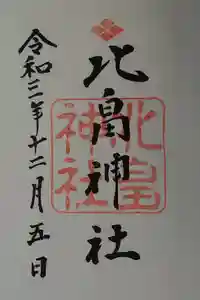 北畠神社
令和三年十二月五日
北畠神社